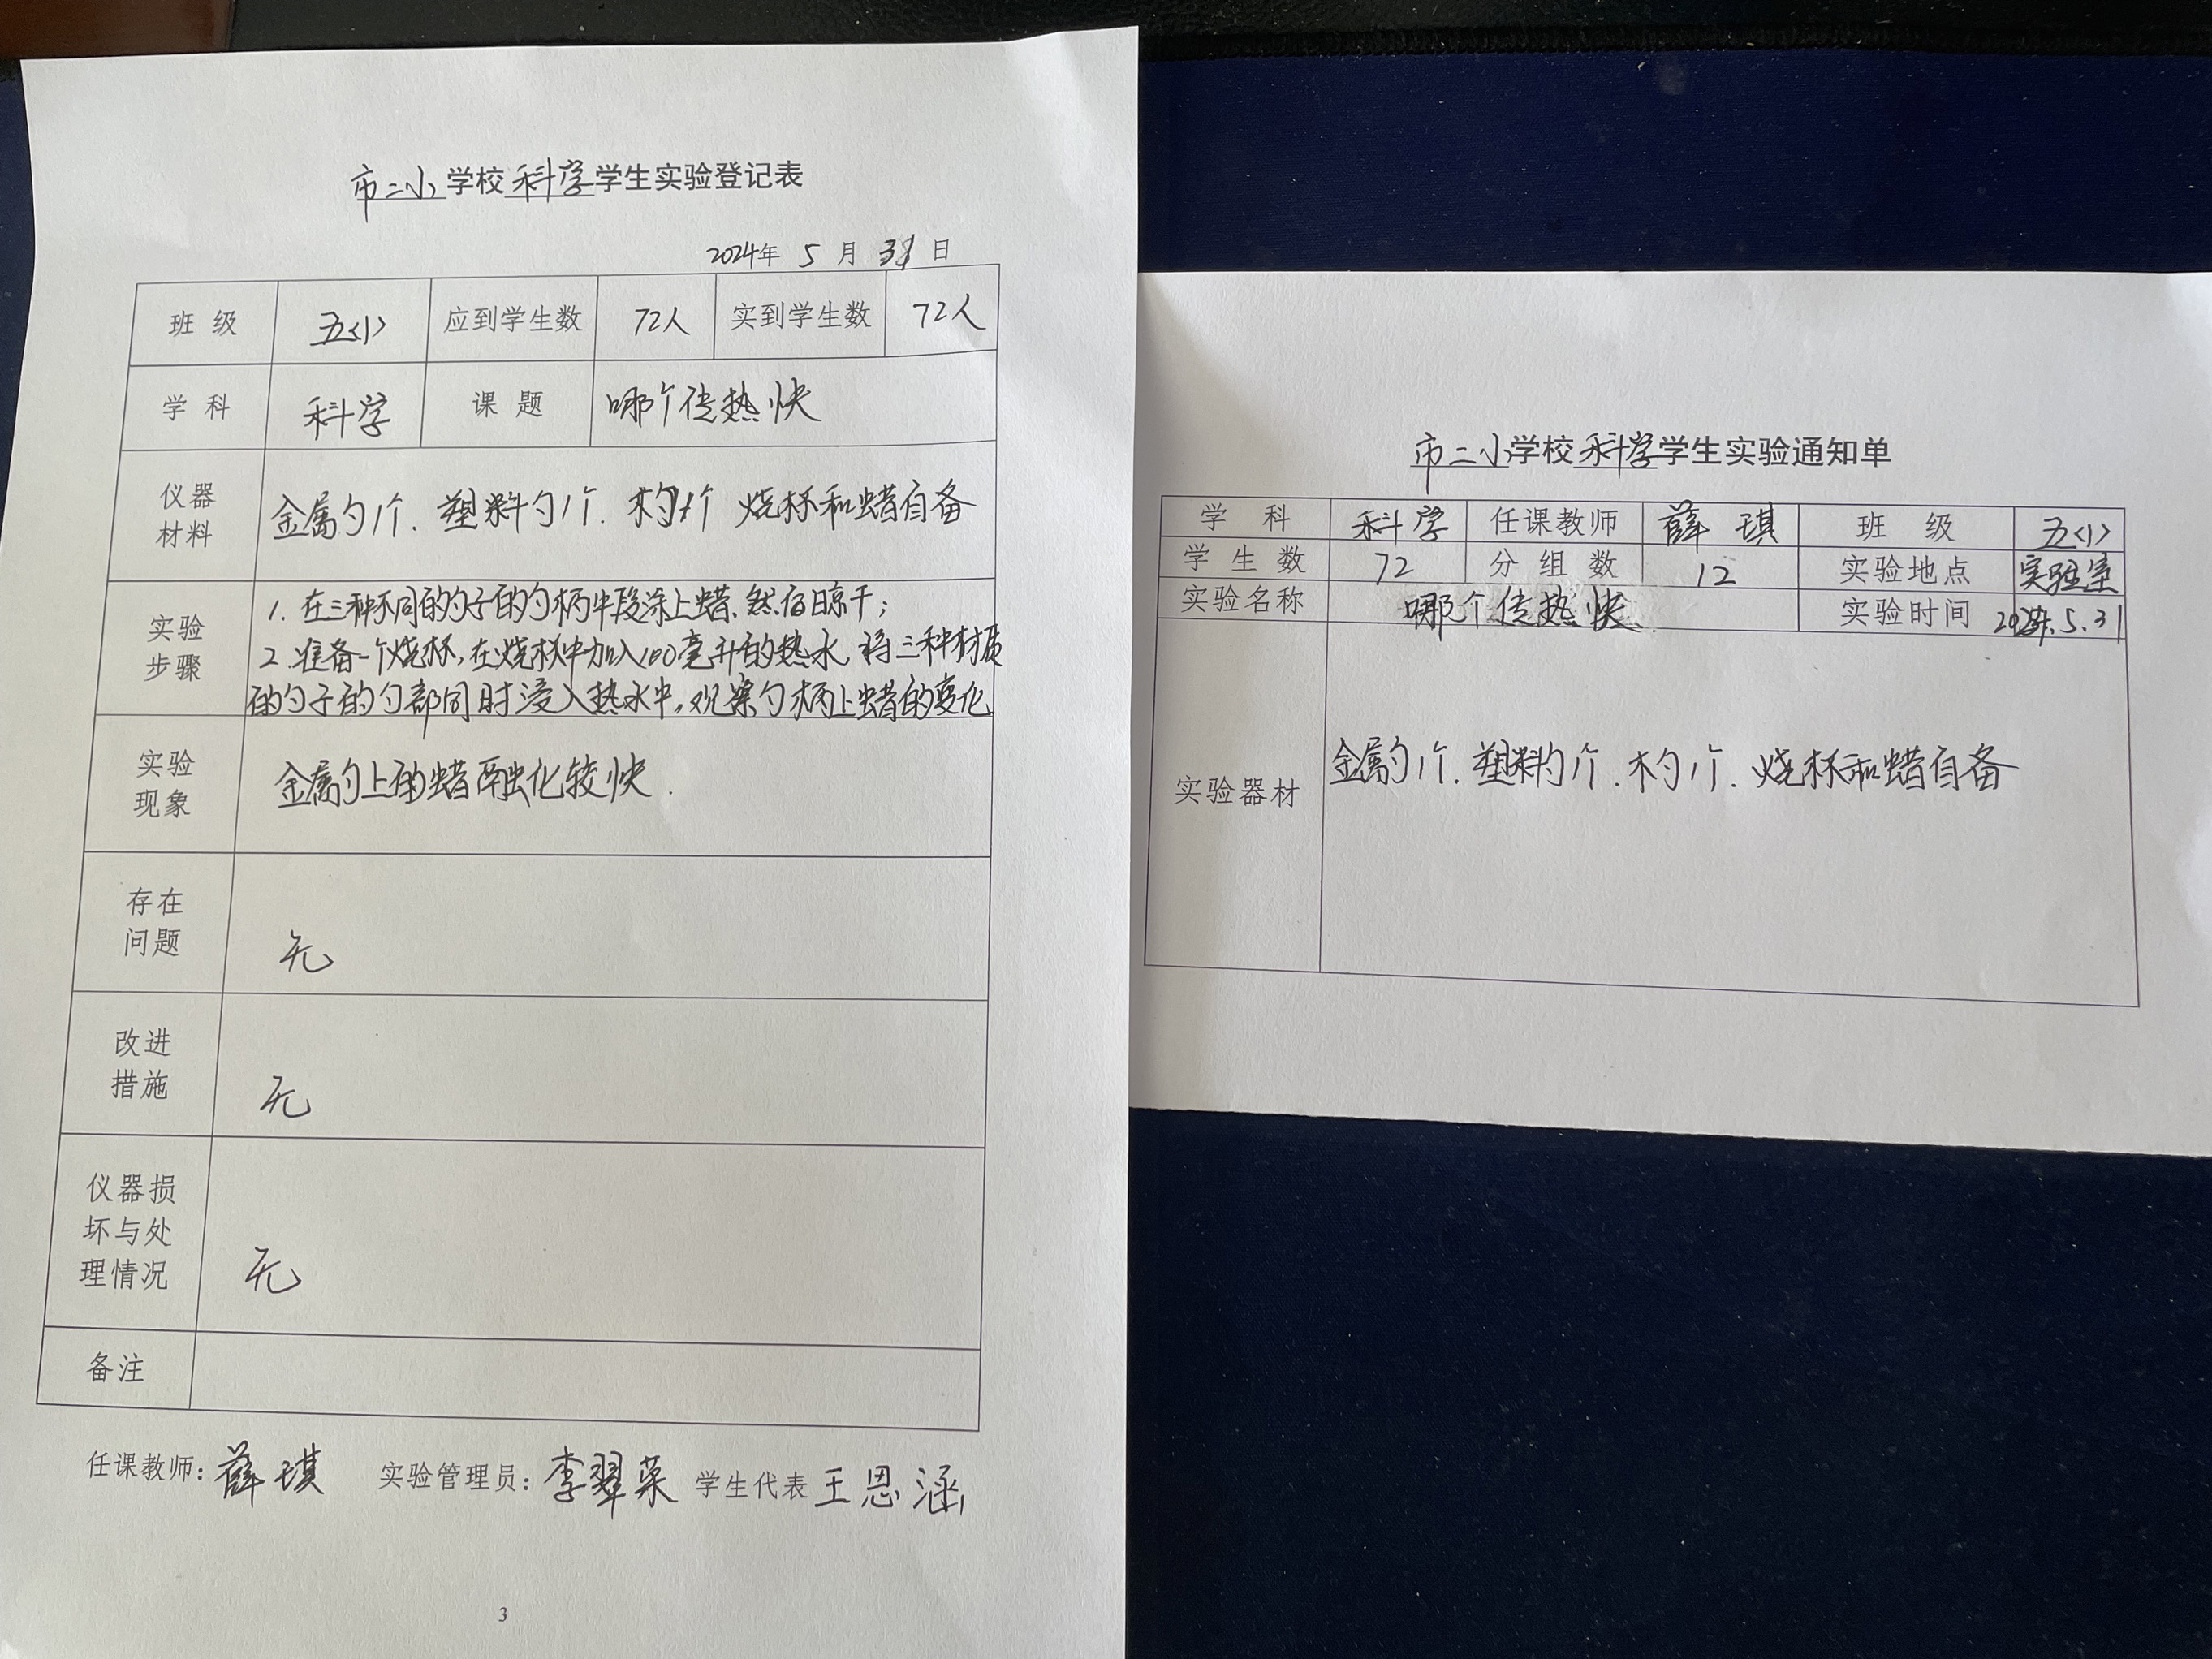 市二小学校科学学生实验登记表
2024年 5 月 31 日
班 级 五<1> 应到学生数 72人 实到学生数 72人
学 科 科学 课 题 哪个传热快
仪器
材料
金属勺1个. 塑料勺1个. 木勺1个 烧杯和蜡自备
实验
步骤
1. 在三种不同的勺子的勺柄中段涂上蜡、然后晾干;
2. 准备一个烧杯,在烧杯中加入100毫升的热水,将三种材质
的勺子的勺部同时浸入热水中,观察勺柄上蜡的变化
实验
现象
金属勺上的蜡融化较快.
存在
问题
无
改进
措施
无
仪器损
坏与处
理情况
无
备注
任课教师: 薛琪 实验管理员: 李翠荣 学生代表 王思涵
3
市二小学校科学学生实验通知单
学 科 科学 任课教师 薛琪 班 级 五<1>
学 生 数 72 分 组 数 12 实验地点 实验室
实验名称 哪个传热快 实验时间 2024.5.31
实验器材 金属勺1个. 塑料勺1个. 木勺1个. 烧杯和蜡自备